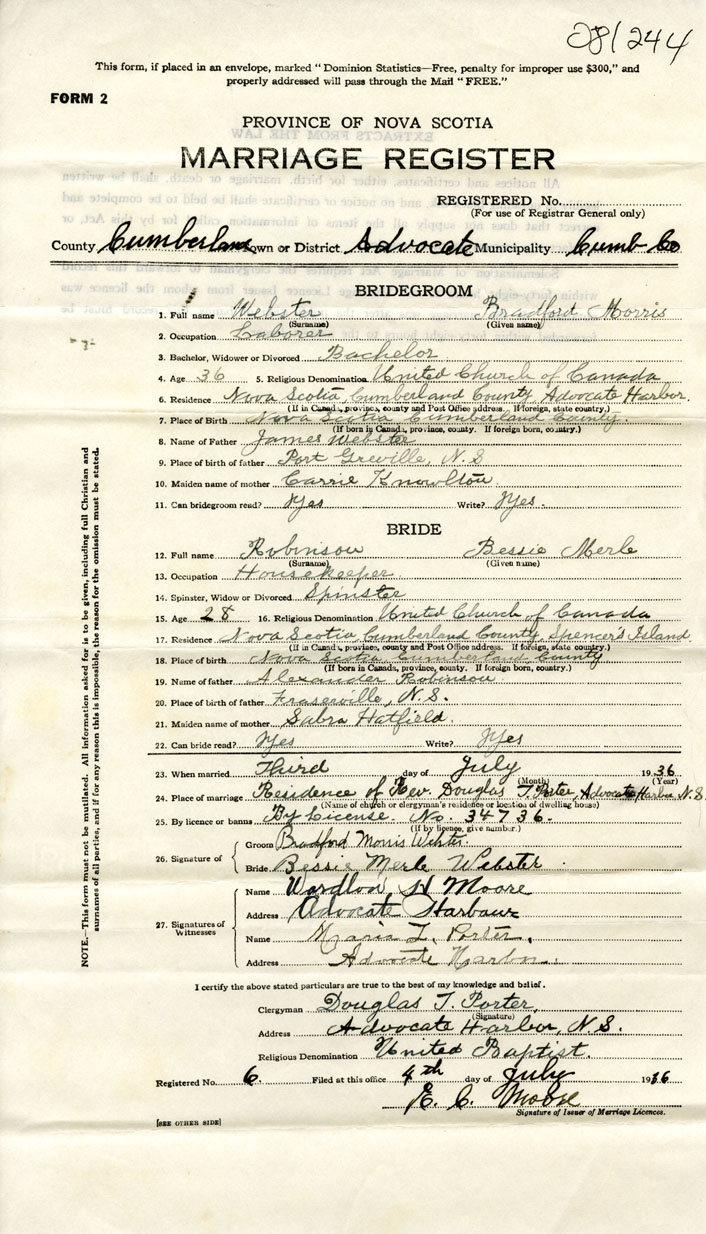 08/244
This form, if placed in an envelope, marked "Dominion Statistics—Free, penalty for improper use $300," and
properly addressed will pass through the Mail "FREE."
FORM 2
PROVINCE OF NOVA SCOTIA
MARRIAGE REGISTER
REGISTERED No.
(For use of Registrar General only)
County Cumberland Town or District Advocate Municipality Cumb Co
BRIDEGROOM
1. Full name Webster Bradford Morris
(Surname) (Given name)
2. Occupation Laborer
3. Bachelor, Widower or Divorced Bachelor
4. Age 36 5. Religious Denomination United Church of Canada
6. Residence Nova Scotia, Cumberland County, Advocate Harbor.
(If in Canada, province, county and Post Office address. If foreign, state country.)
7. Place of Birth Nova Scotia Cumberland County.
(If born in Canada, province, county. If foreign born, country.)
8. Name of Father James Webster
9. Place of birth of father Port Greville, N.S
10. Maiden name of mother Carrie Knowlton
11. Can bridegroom read? Yes Write? Yes.
BRIDE
12. Full name Robinson Bessie Merle
(Surname) (Given name)
13. Occupation Housekeeper
14. Spinster, Widow or Divorced Spinster
15. Age 28 16. Religious Denomination United Church of Canada
17. Residence Nova Scotia, Cumberland County, Spencer's Island
(If in Canada, province, county and Post Office address. If foreign, state country.)
18. Place of birth Nova Scotia Cumberland County
(If born in Canada, province, county. If foreign born, country.)
19. Name of father Alexander Robinson
20. Place of birth of father Fraserville, N.S.
21. Maiden name of mother Sabra Hatfield.
22. Can bride read? Yes Write? Yes
23. When married Third day of July 1936
(Month) (Year)
24. Place of marriage Residence of Rev. Douglas T. Porter, Advocate Harbor N.S.
(Name of church or clergyman's residence or location of dwelling house)
25. By licence or banns By License. No. 34736.
(If by licence, give number.)
26. Signature of
Groom Bradford Morris Webster.
Bride Bessie Merle Webster.
27. Signatures of Witnesses
Name H Moore
Address Advocate Harbour
Name Maria L. Porter.
Address Advocate Harbor.
I certify the above stated particulars are true to the best of my knowledge and belief.
Clergyman Douglas T. Porter.
(Signature)
Address Advocate Harbor, N.S.
Religious Denomination United Baptist.
Registered No. 6. Filed at this office 4th day of July 1936
E. C. Moore
Signature of Issuer of Marriage Licences.
[SEE OTHER SIDE]
NOTE.—This form must not be mutilated. All information asked for is to be given, including full Christian and
surnames of all parties, and if for any reason this is impossible, the reason for the omission must be stated.